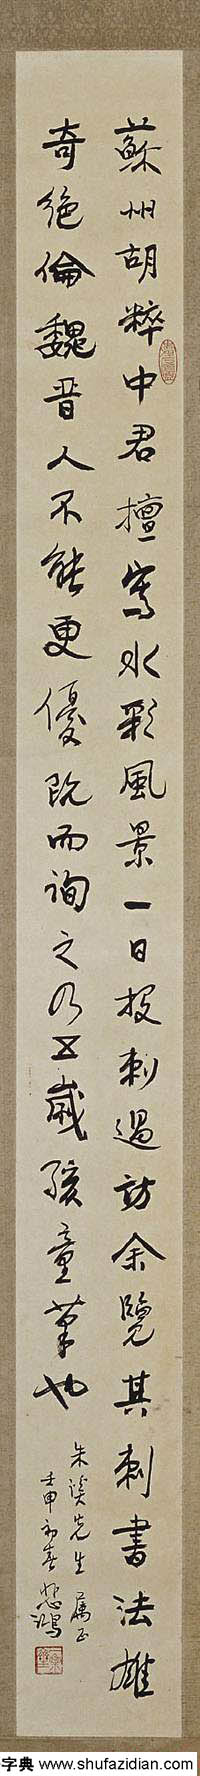 蘇州胡粹中君擅寫水彩風景一日投刺過訪余覽其刺書法雄
奇絶倫魏晉人不能更優既而詢之乃五歲孩童筆也
朱談先生屬正
壬申初春悲鴻
字典 www.shufazidian.com